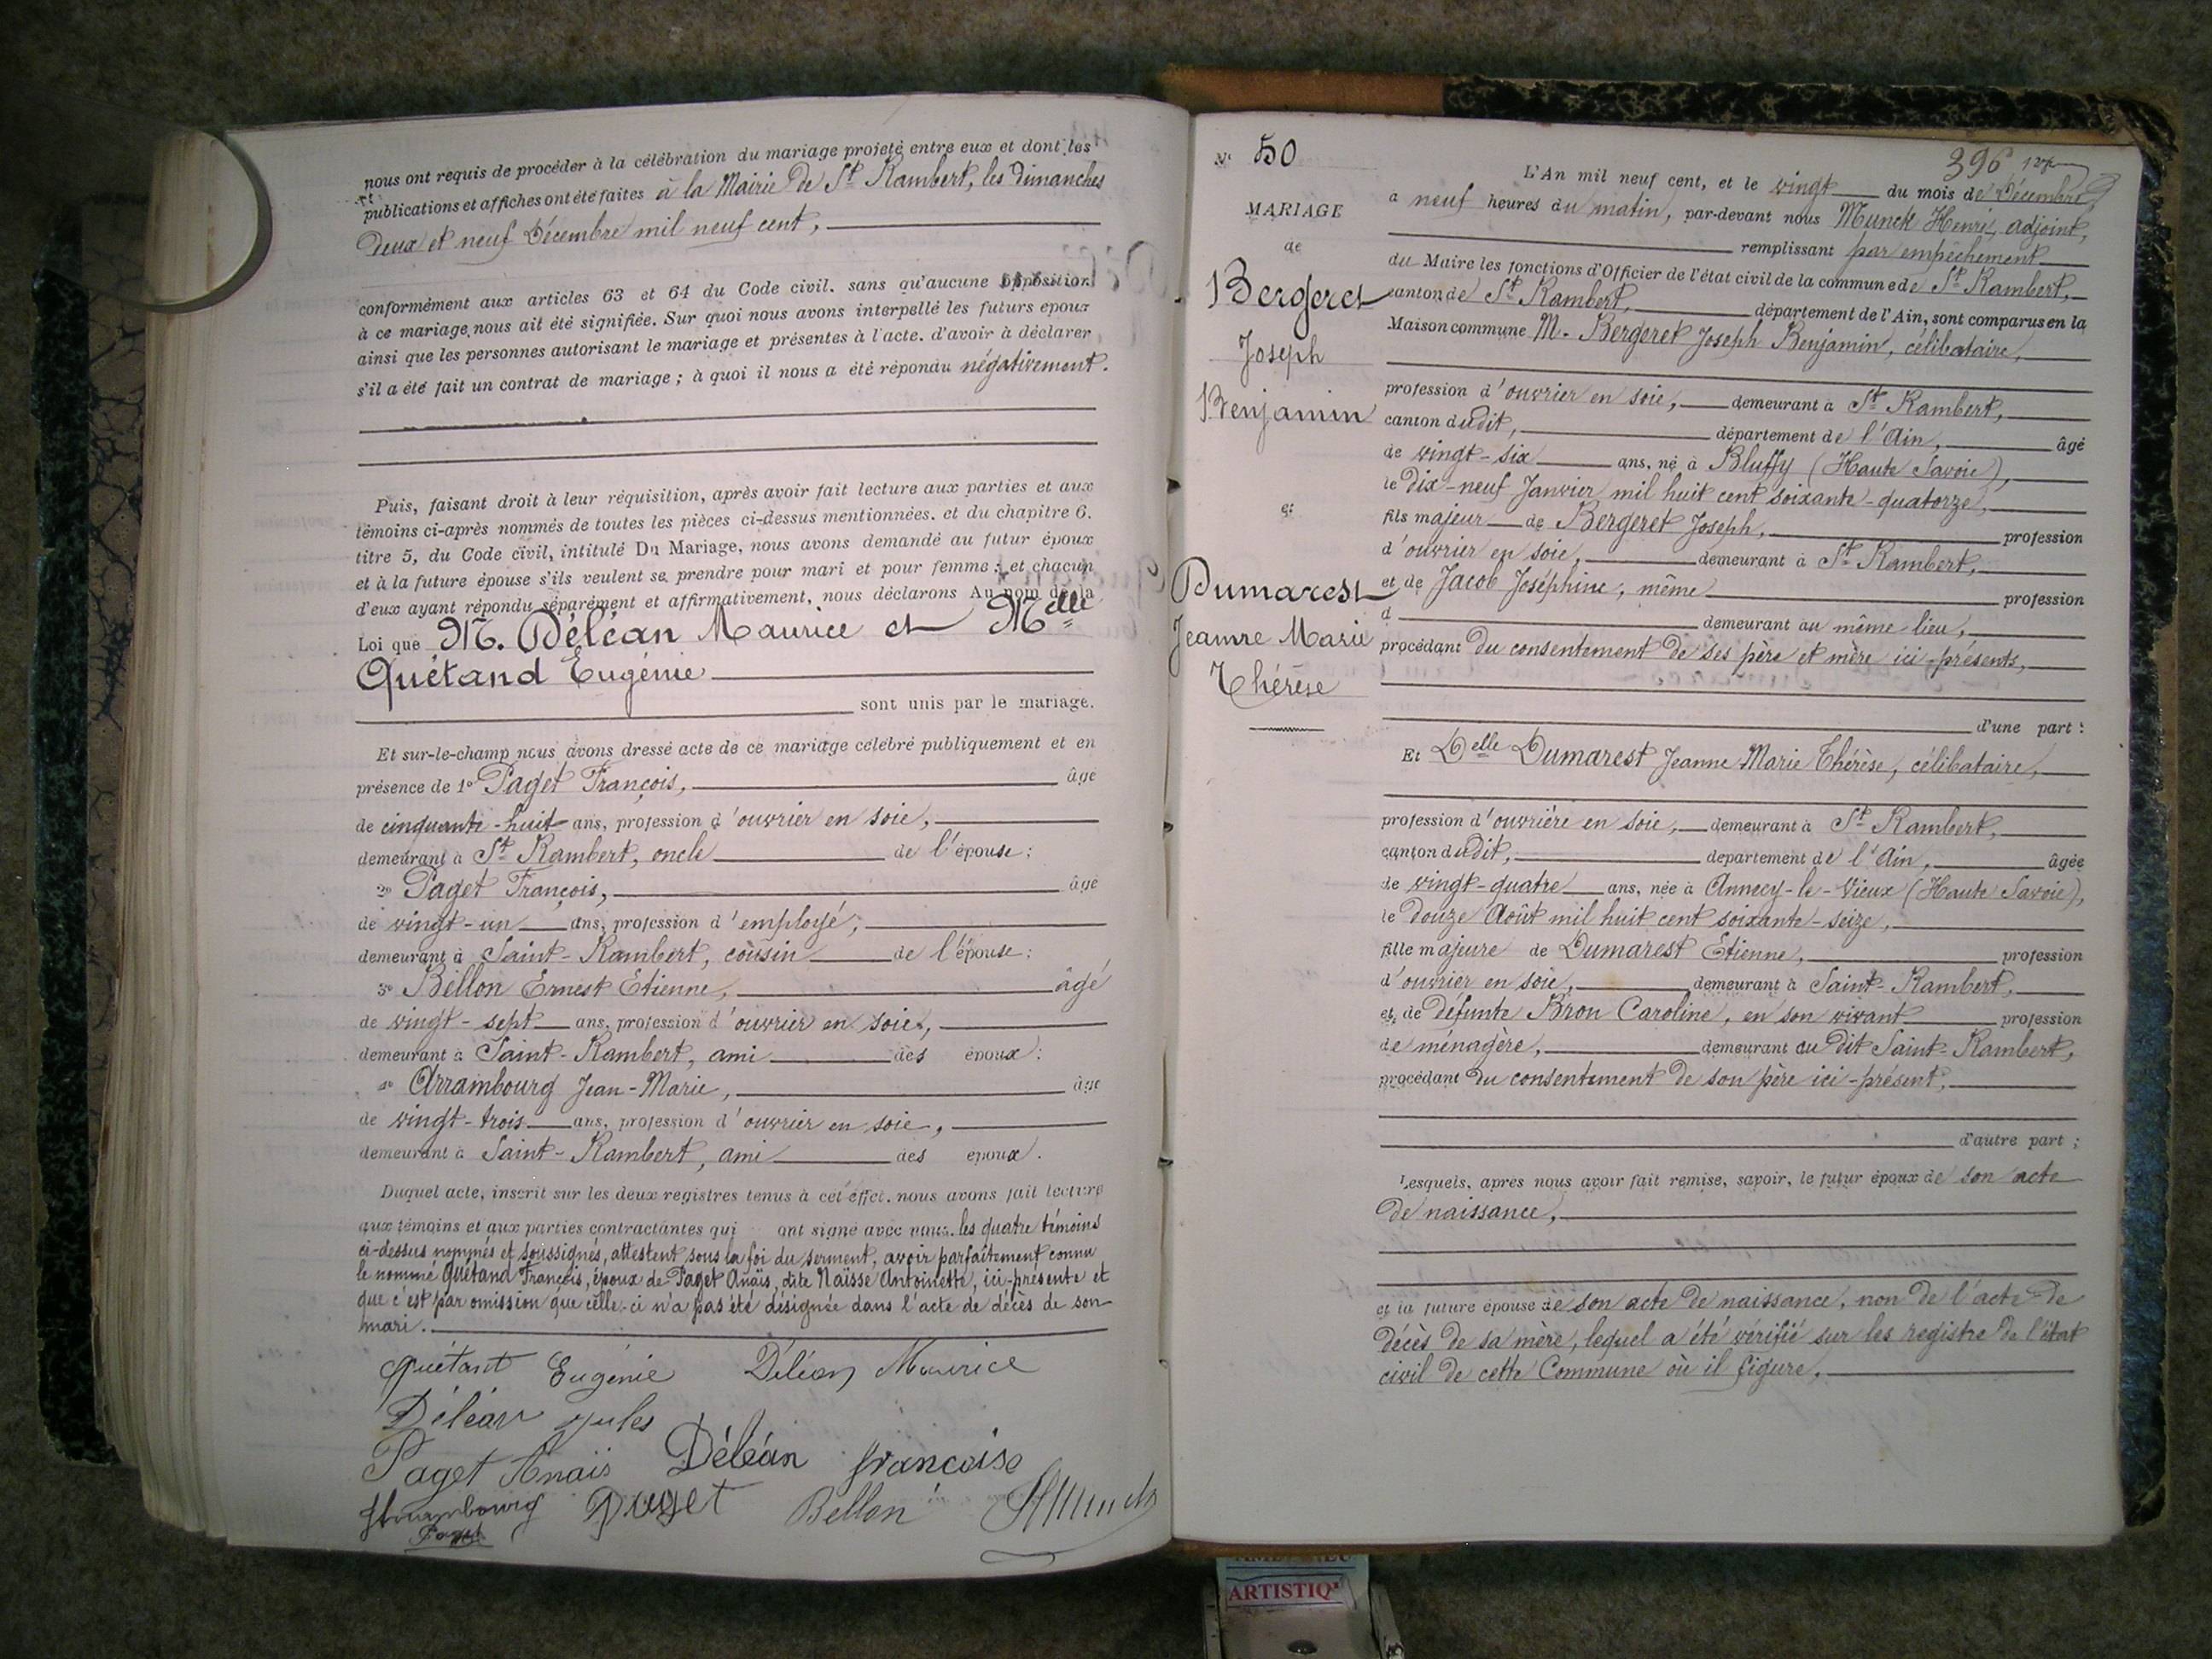 nous ont requis de procéder à la célébration du mariage projeté entre eux et dont les
publications et affiches ont été faites à la Mairie de St Rambert, les dimanches
deux et neuf Décembre mil neuf cent,
conformément aux articles 63 et 64 du Code civil. sans qu'aucune opposition
à ce mariage nous ait été signifiée. Sur quoi nous avons interpellé les futurs epoux
ainsi que les personnes autorisant le mariage et présentes à l'acte. d'avoir à déclarer
s'il a été fait un contrat de mariage ; à quoi il nous a été répondu négativement.
Puis, faisant droit à leur réquisition, après avoir fait lecture aux parties et aux
témoins ci-après nommés de toutes les pièces ci-dessus mentionnées. et du chapitre 6.
titre 5, du Code civil, intitulé Du Mariage, nous avons demandé au futur époux
et à la future épouse s'ils veulent se prendre pour mari et pour femme : et chacun
d'eux ayant répondu séparément et affirmativement, nous déclarons Au nom de la
Loi que M. Déléan Maurice et Melle
Quétand Eugénie
sont unis par le mariage.
Et sur-le-champ nous avons dressé acte de ce mariage célébré publiquement et en
présence de 1o Paget François, âgé
de cinquante-huit ans, profession d'ouvrier en soie,
demeurant à St Rambert, oncle de l'épouse ;
2o Paget François, âgé
de vingt-un ans, profession d'employé ;
demeurant à Saint-Rambert, cousin de l'épouse ;
3o Bellon Ernest Etienne, âgé
de vingt-sept ans, profession d'ouvrier en soie,
demeurant à Saint-Rambert, ami des époux :
4o Arrambourg Jean-Marie, âgé
de vingt-trois ans, profession d'ouvrier en soie,
demeurant à Saint-Rambert, ami des époux.
Duquel acte, inscrit sur les deux registres tenus à cet effet. nous avons fait lecture
aux témoins et aux parties contractantes qui ont signé avec nous. les quatre témoins
ci-dessus nommés et soussignés, attestent sous la foi du serment, avoir parfaitement connu
le nommé Quétand François, époux de Paget Anaïs, dite Naïsse Antoinette, ici-présente et
que c'est par omission que celle-ci n'a pas été désignée dans l'acte de décès de son
mari.
Quétant Eugénie Déléan Maurice
Déléan Jules
Paget Anaïs Déléan francoise
Paget Bellon
Paget
No 50
396
MARIAGE
de
Bergeret
Joseph
Benjamin
et
Dumarest
Jeanne Marie
Thérèse
L'An mil neuf cent, et le vingt du mois de Décembre
a neuf heures du matin, par-devant nous Munck Henri, adjoint,
remplissant par empêchement
du Maire les fonctions d'Officier de l'état civil de la commune de St Rambert,
canton de St Rambert, département de l'Ain, sont comparus en la
Maison commune M. Bergeret Joseph Benjamin, célibataire,
profession d'ouvrier en soie, demeurant à St Rambert,
canton dudit, département de l'Ain, âgé
de vingt-six ans, né à Bluffy (Haute Savoie),
le dix-neuf Janvier mil huit cent soixante-quatorze,
fils majeur de Bergeret Joseph, profession
d'ouvrier en soie, demeurant à St Rambert,
et de Jacob Joséphine, même profession
d demeurant au même lieu,
procédant du consentement de ses père et mère ici-présents,
d'une part :
Et Delle Dumarest Jeanne Marie Thérèse, célibataire,
profession d'ouvrière en soie, demeurant à St Rambert,
canton dudit, departement de l'Ain, âgée
de vingt-quatre ans, née à Annecy-le-Vieux (Haute Savoie),
le douze Août mil huit cent soixante-seize,
fille majeure de Dumarest Etienne, profession
d'ouvrier en soie, demeurant à Saint-Rambert,
et de défunte Bron Caroline, en son vivant profession
de ménagère, demeurant au dit Saint-Rambert,
procédant du consentement de son père ici-présent,
d'autre part ;
Lesquels, apres nous avoir fait remise, savoir, le futur époux de son acte
de naissance,
et la future épouse de son acte de naissance, non de l'acte de
décès de sa mère, lequel a été vérifié sur les registre de l'état
civil de cette Commune où il figure.
ARTISTIQ